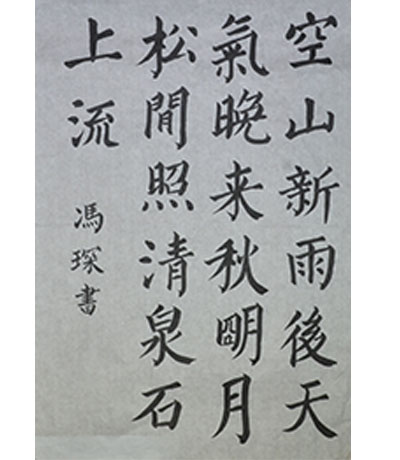 空山新雨後天
氣晚来秋朙月
松間照清泉石
上流
馮琛書